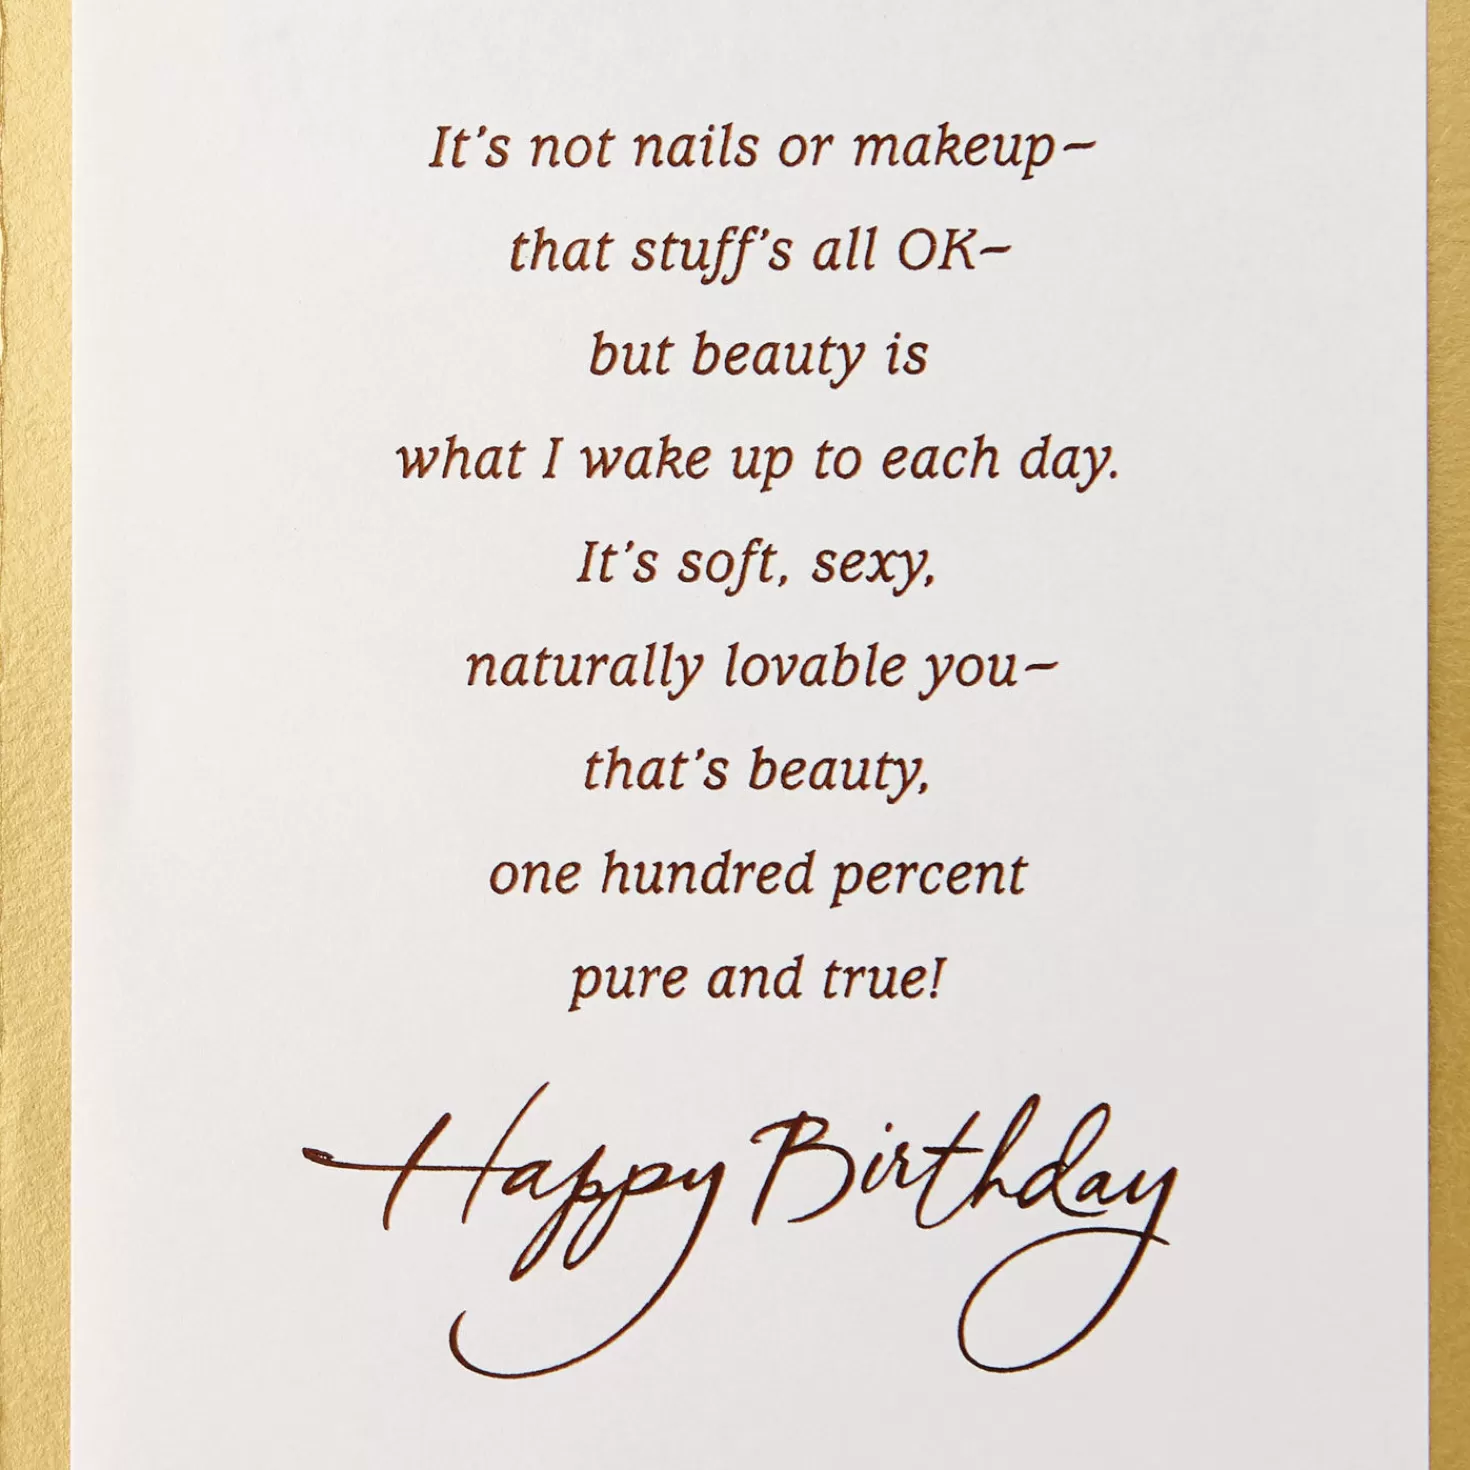 It's not nails or makeup–
that stuff's all OK–
but beauty is
what I wake up to each day.
It's soft, sexy,
naturally lovable you–
that's beauty,
one hundred percent
pure and true!
Happy Birthday